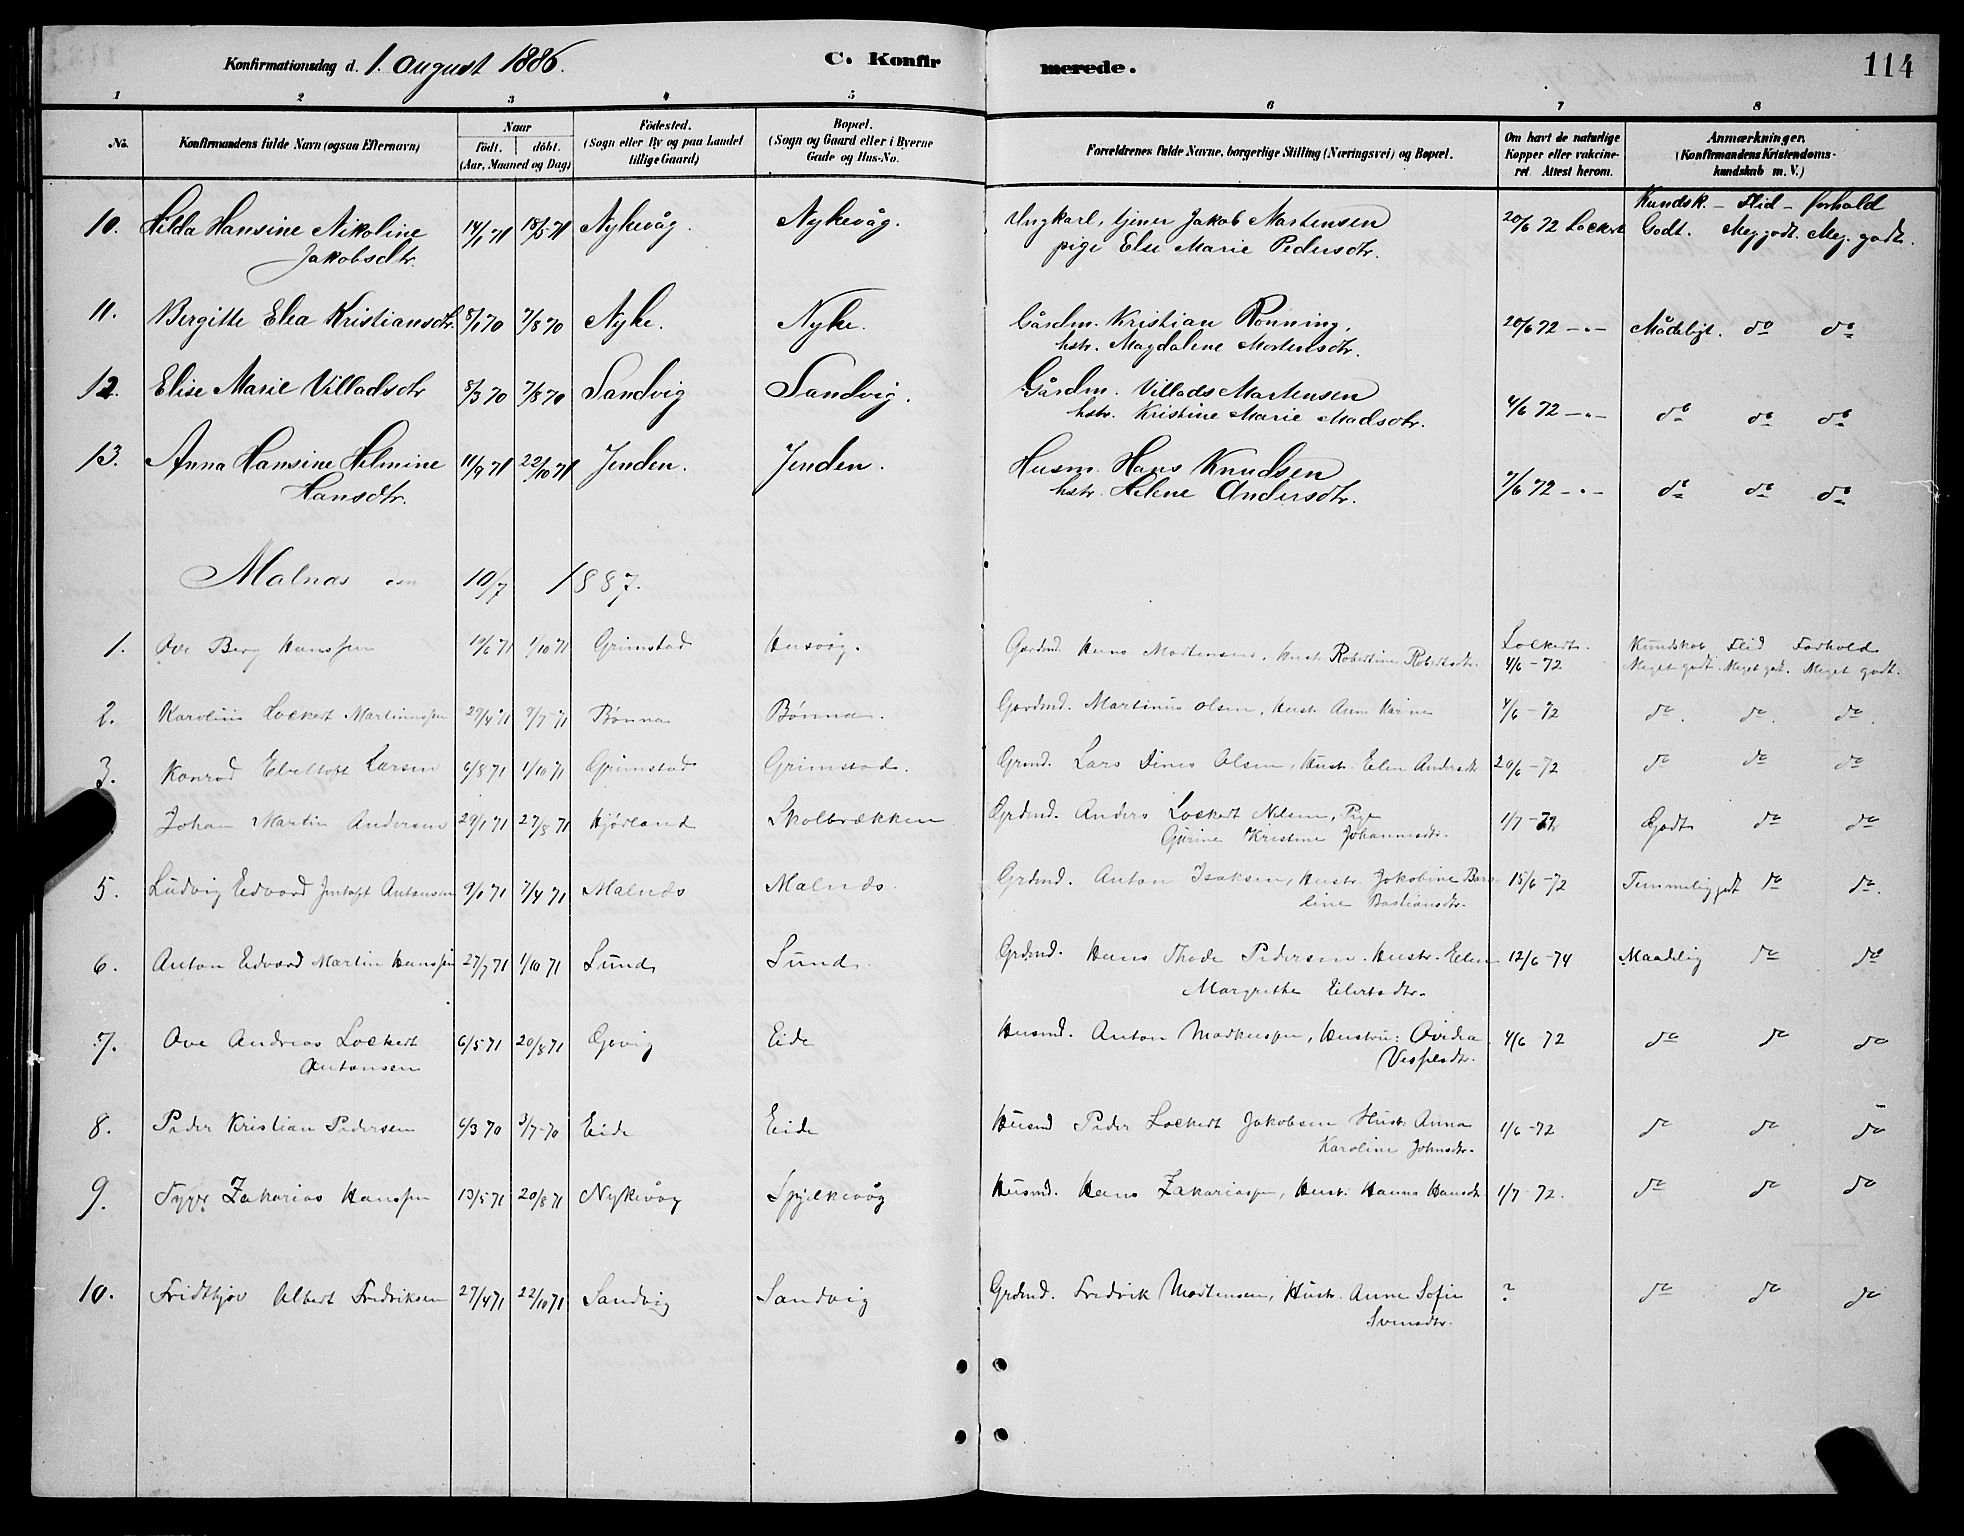 Konfirmationsdag d. 1. August 1886. C. Konfirmerede. 114
1 2 3 4 5 6 7 8
No. Konfirmandens fulde Navn (ogsaa Efternavn) Naar födt. döbt. (Aar, Maaned og Dag) Födested. (Sogn eller By og paa Landet tillige Gaard) Bopæl. (Sogn og Gaard eller i Byerne Gade og Hus-No. Forældrenes fulde Navne, borgerlige Stilling (Næringsvei) og Bopæl. Om havt de naturlige Kopper eller vakcineret Attest herom. Anmærkninger. (Konfirmandens Kristendomskundskab m. V.)
Kundsk. – Flid – forhold
10. Hilda Hansine Nikoline 14/1 71 18/5 71 Nykevåg. Nykevåg. Ungkarl, tjener Jakob Martensen 20/6 72 Lockert Godt. Meg godt. Meg. godt.
Jakobsdtr. pige Else Marie Pedersdtr.
11. Bergitte Elea Kristiansdtr. 8/1 70 7/8 70 Nyke. Nyke. Gårdm. Kristian Rönning, 20/6 72 –"– Mådeligt. do do
hstr. Magdalene Mortensdtr.
12. Elise Marie Villadsdtr 8/3 70 7/8 70 Sandvig Sandvig. Gårdm. Villads Martensen 4/6 72 –"– do do do
hstr. Kristine Marie Madsdtr.
13. Anna Hansine Helmine 11/9 71 22/10 71 Jenden. Jenden. Husm. Hans Knudsen 7/6 72 –"– do do do
Hansdtr. hstr. Helene Andersdtr.
Malnæs den 10/7 1887.
1. Ove Berg Hanssen 19/6 71 1/10 71 Grimstad Husvåg. Gardmd. Hans Mortensen, Hustr. Robertine Robertsdtr. Lockert. 4/6 – 72 Kundskab Flid Forhold
Meget godt. Meget godt. Meget godt.
2. Karolius Lockert Martinussen 29/4 71 9/7 – 71 Bönna Bönna. Gardmd. Martinus Olsen, Hustr. Anne Karine 4/6 – 72 do. do. do.
3. Konrad Ebeltoft Larsen 6/8 71 1/10 71 Grimstad Grimstad. Grmd. Lars Dines Olsen, Hustr. Elen Andersdtr. 20/6 – 72 do do do
Johan Martin Andersen 29/1 71 27/8 71 Hjörland Skolbrækken Grdmd. Anders Lockert Nilsen, Pige 1/7 – 72 Godt do do
Gurine Kristine Johannesdtr.
5. Ludvig Edvard Jentoft Antonsen 9/1 71 7/4 71 Malnæs Malnæs. Grdmd. Anton Isaksen, Hustr. Jakobine Bero- 15/6 – 72 Temmelig godt do do.
line Bastiansdtr.
6. Anton Edvard Martin Hanssen 27/7 71 1/10 71 Lund Lund. Grdmd. Hans Thode Pedersen. Hustr. Elen 12/6 – 74 Maadelig do do
Margrethe Eilertsdtr.
7. Ove Andreas Lockert 6/5 71 20/8 71 Gjevig Eide Husmd. Anton Markussen, Hustru: Ovidia 4/6 72 do do do
Antonsen
8. Peder Kristian Pedersen 6/3 70 3/7 – 70 Eide Eide Husmd Peder Lockert Jakobsen Hust: Anna 1/6 – 72 do do do
Karoline Johnsdtr.
9. Zakarias Hanssen 13/5 71 20/8 71 Nykevåg Spjelkevåg Husmd. Hans Zakariassen, Hustr: Hanna Hansdtr. 1/7 – 72. do do do
10. Fridthjov Albert Fredriksen 27/4 71 22/10 71 Sandvig Sandvig Grdmd. Fredrik Mortensen, Hustr. Anne Sofie ? do do do
Svensdtr.